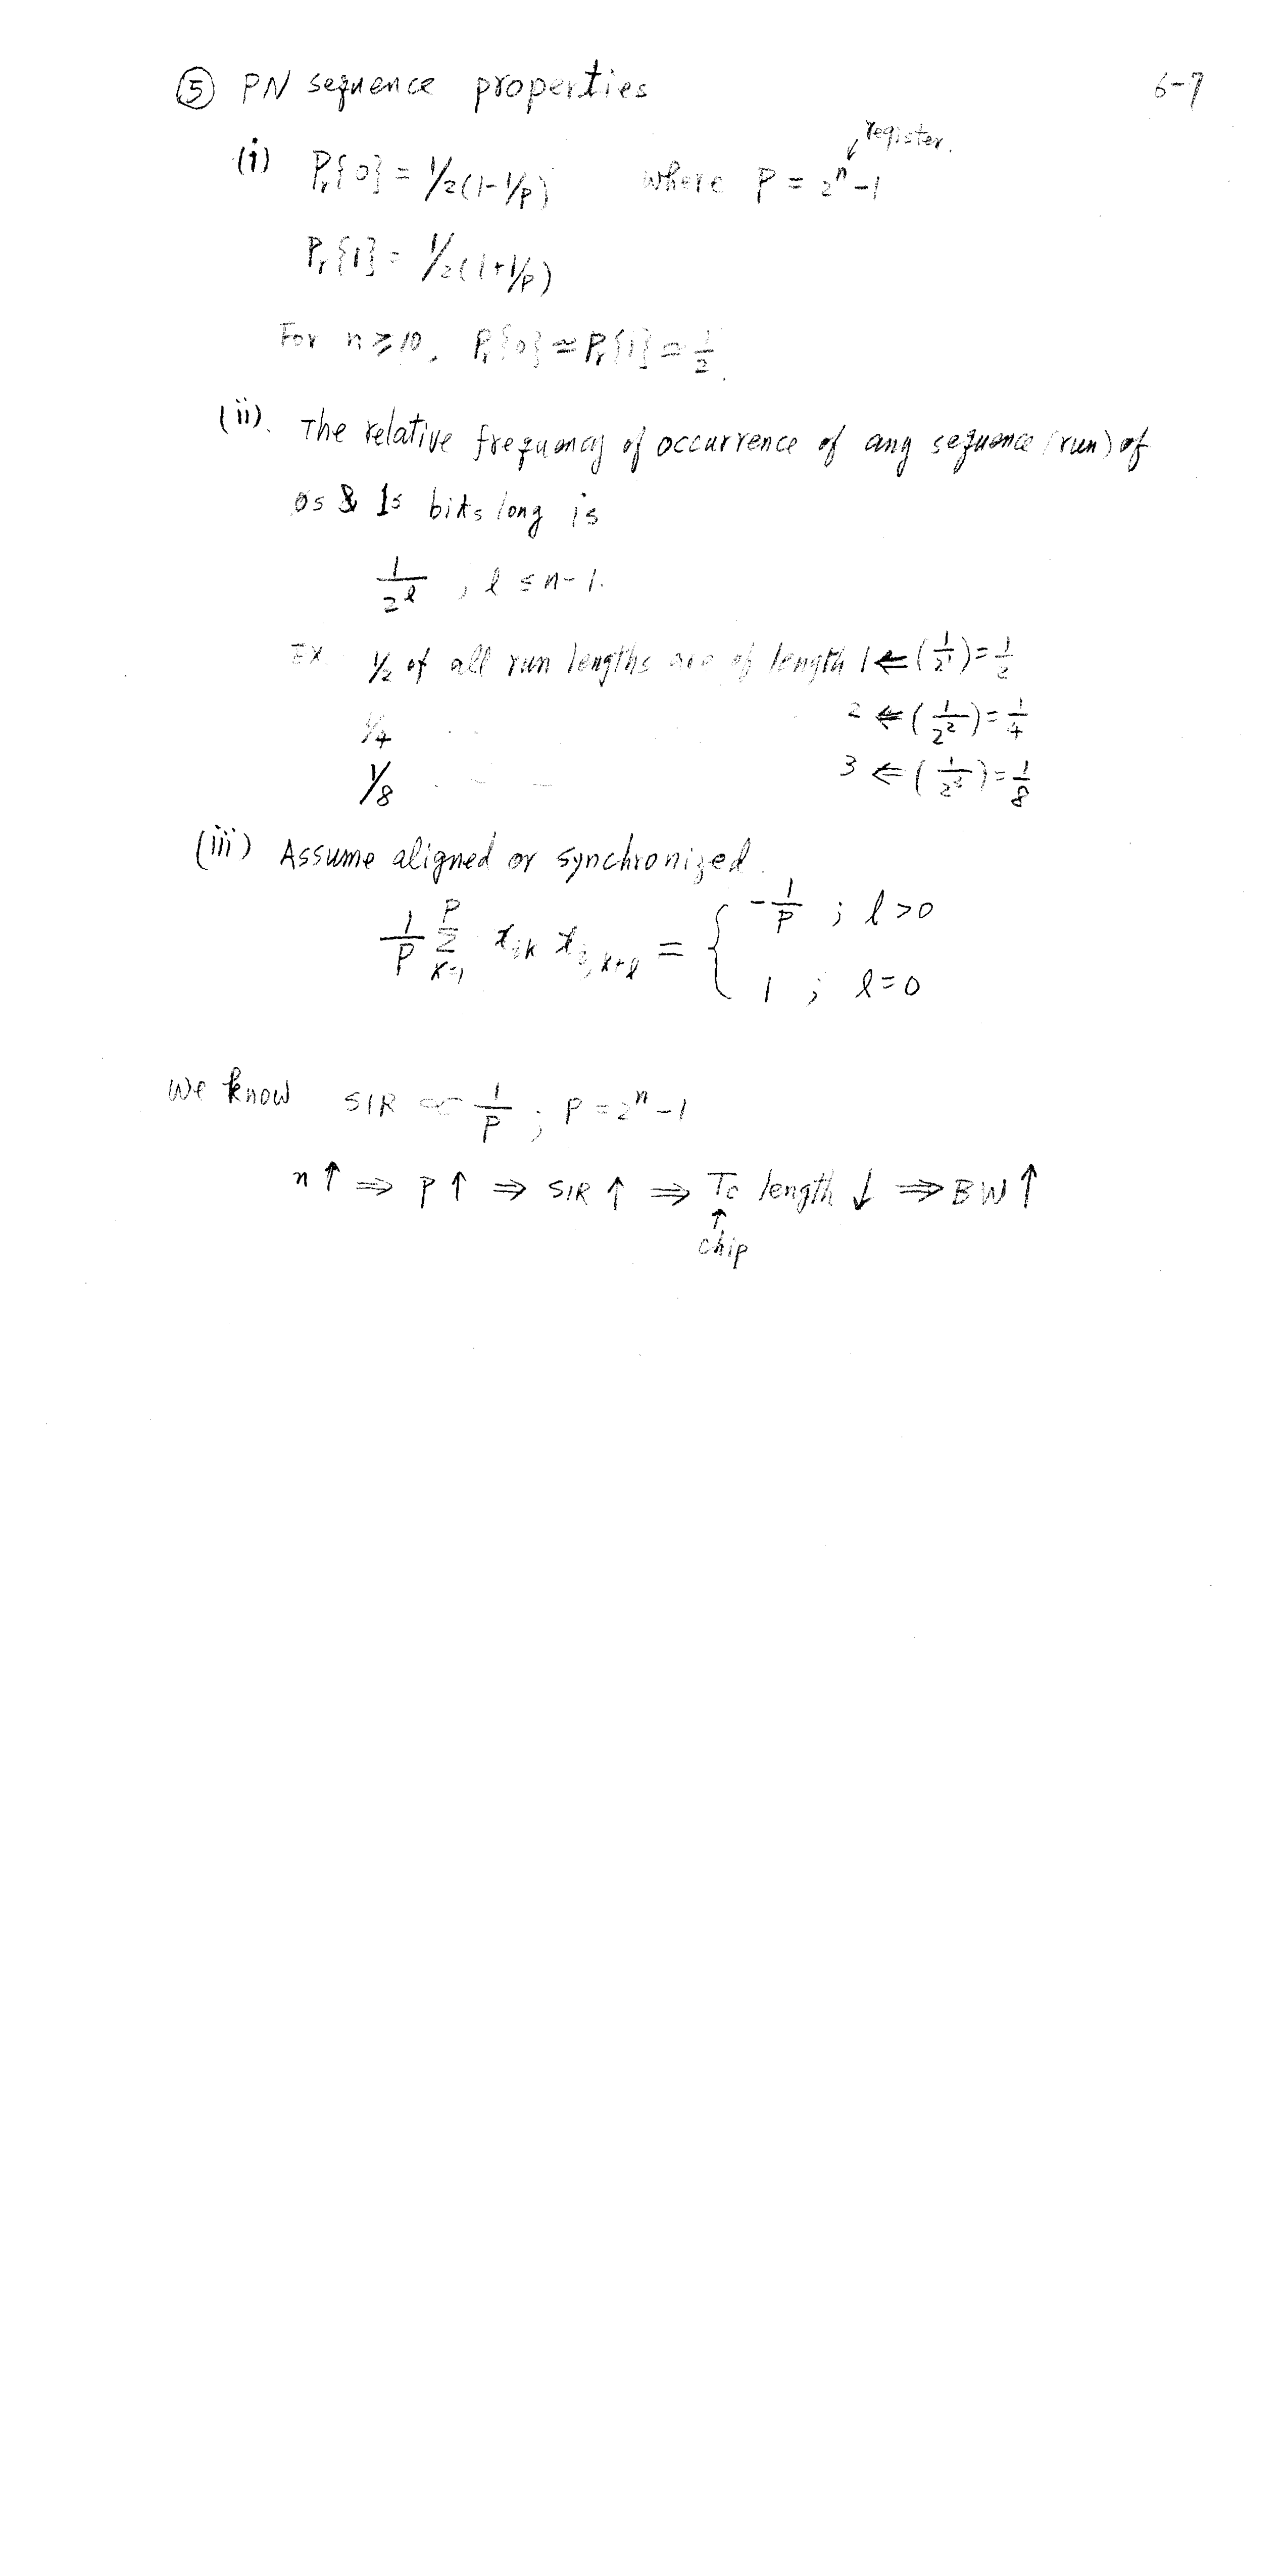 ⑤ PN sequence properties 6-7
register.
(i) Pr{0} = 1/2(1-1/P) where P = 2^n -1
Pr{1} = 1/2(1+1/P)
For n ≥ 10, Pr{0} ≃ Pr{1} = 1/2.
(ii). The relative frequency of occurrence of any sequence (run) of
0s & 1s bits long is
1/2^l , l ≤ n-1.
EX. 1/2 of all run lengths are of length 1 ⇐ (1/2^1) = 1/2
1/4 2 ⇐ (1/2^2) = 1/4
1/8 3 ⇐ (1/2^3) = 1/8
(iii) Assume aligned or synchronized.
1/P Σ_{k=1}^{P} x_{ik} x_{i,k+l} = { -1/P ; l>0
1 ; l=0
We know SIR ∝ 1/P ; P = 2^n -1
n↑ ⇒ P↑ ⇒ SIR↑ ⇒ Tc length ↓ ⇒ BW↑
↑
chip